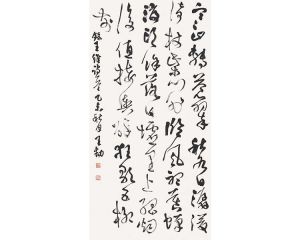 寒山轉蒼翠秋水日潺湲
倚杖柴門外臨風聽暮蟬
渡頭餘落日墟里上孤烟
復值接輿醉狂歌五柳
前
錄王維詩 乙未秋月